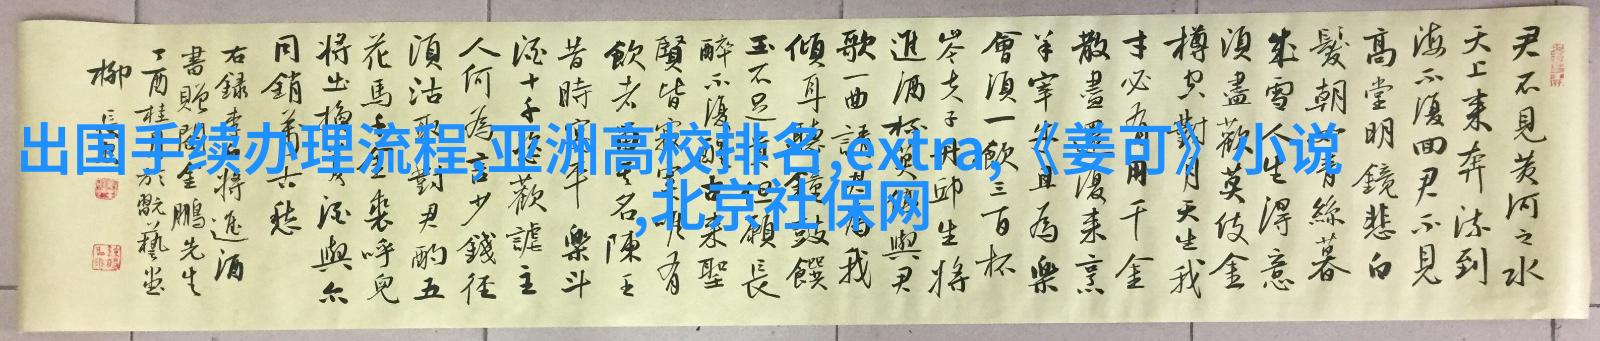 君不見黃河之水
天上来奔流到
海不復回君不見
高堂明鏡悲白
髮朝如青絲暮
成雪人生得意
須盡歡莫使金
樽空對月天生我
才必有用千金
散盡還復来烹
羊宰牛且為樂
會須一飲三百杯
岑夫子丹邱生將
進酒杯莫停與君
歌一曲請君為我
傾耳聽鐘鼓饌
玉不足貴但願長
醉不復醒古来聖
賢皆寂寞惟有
飲者留其名陳王
昔時宴平樂斗
酒十千恣歡謔主
人何為言少錢徑
須沽取對君酌五
花馬千金裘呼兒
將出換美酒與尔
同銷萬古愁
右録李白將進酒
書贈金鵬先生
丁酉桂月於翫藝堂
柳
出国手续办理流程,亚洲高校排名,extra,《姜可》小说
,北京社保网